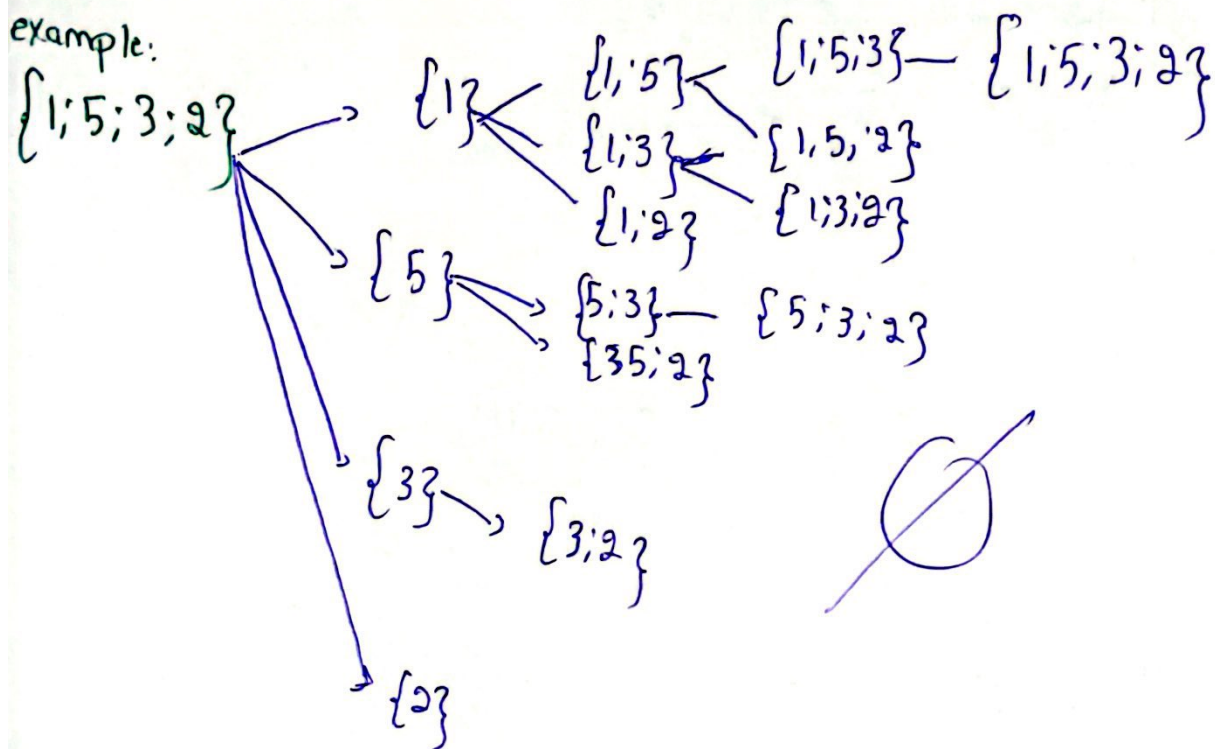 example:
{1;5;3;2}
{1} {1;5} {1;5;3} {1;5;3;2}
{1;3} {1,5,2}
{1;2} {1;3;2}
{5} {5;3} {5;3;2}
{35;2}
{3} {3;2}
∅
{2}